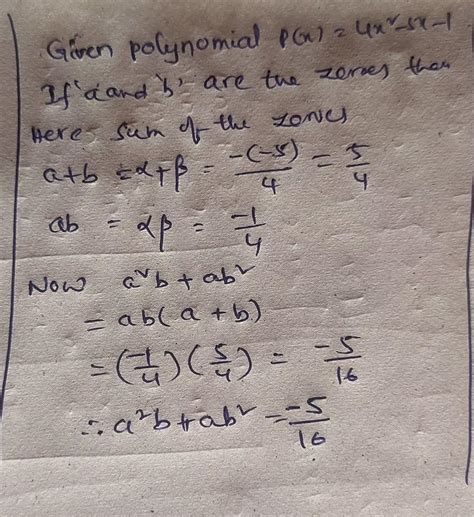 Given polynomial P(x) = 4x²-5x-1
If 'a' and 'b' are the zeroes then
Here sum of the zeroes
a+b = α+β = -(-5)/4 = 5/4
ab = αβ = -1/4
Now a²b + ab²
= ab(a+b)
= (-1/4)(5/4) = -5/16
∴ a²b+ab² = -5/16